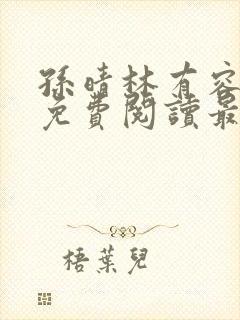 孫晴林有容
免費閱讀最
梧葉兒